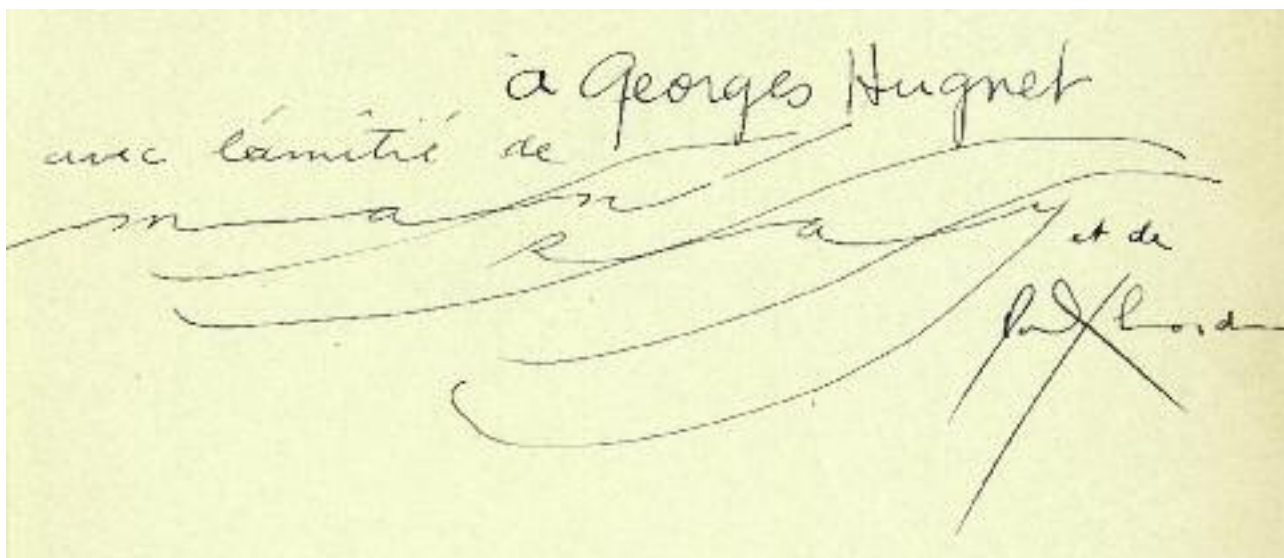 à Georges Hugnet
avec l'amitié de
man
Ray
et de
Paul Eluard